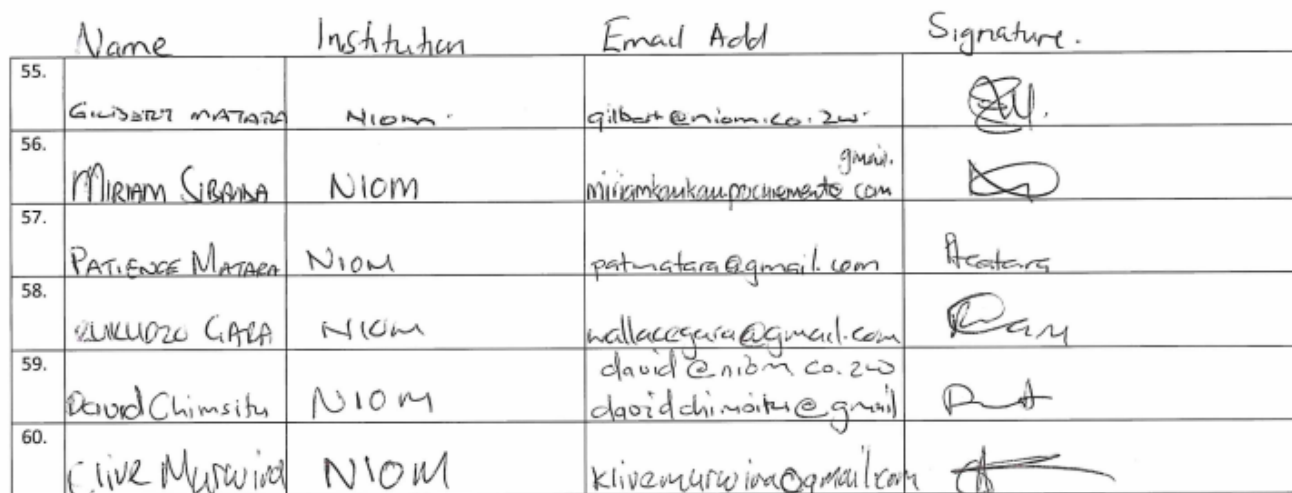 Name Institution Email Add Signature.
55. GILBERT MATARA NIOM. gilbert@niom.co.zw.
gmail.
56. MIRIAM SIBANDA NIOM miriamkaukauprocurement@ com
57. PATIENCE MATARA NIOM patmatara@gmail.com
58. KUKUDZO GARA NIOM wallacegara@gmail.com
david@niom.co.zw
59. David Chimsitu NIOM davidchimsitu@gmail
60. Clive Murwira NIOM klivemurwira@gmail.com